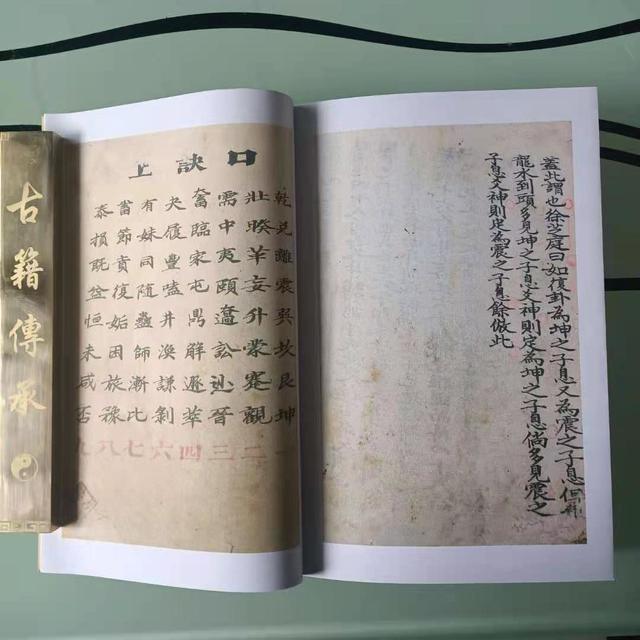 蓋此謂也徐芝庭曰如復卦為坤之子息又為震之子息但看
龍水到頭多見坤之子息爻神則定為坤之子息倘多見震之
子息爻神則定為震之子息餘倣此
口訣上
乾兌離震巽坎艮坤
壯睽革妄升蒙蹇觀
需中夷頤訟晉
臨家屯鼎解遯萃
夬履豐嗑井渙謙剝
有妹同隨蠱師漸比
節賁復姤困旅豫
泰損既益恒未咸否
一二三四六七八九
古籍傳承